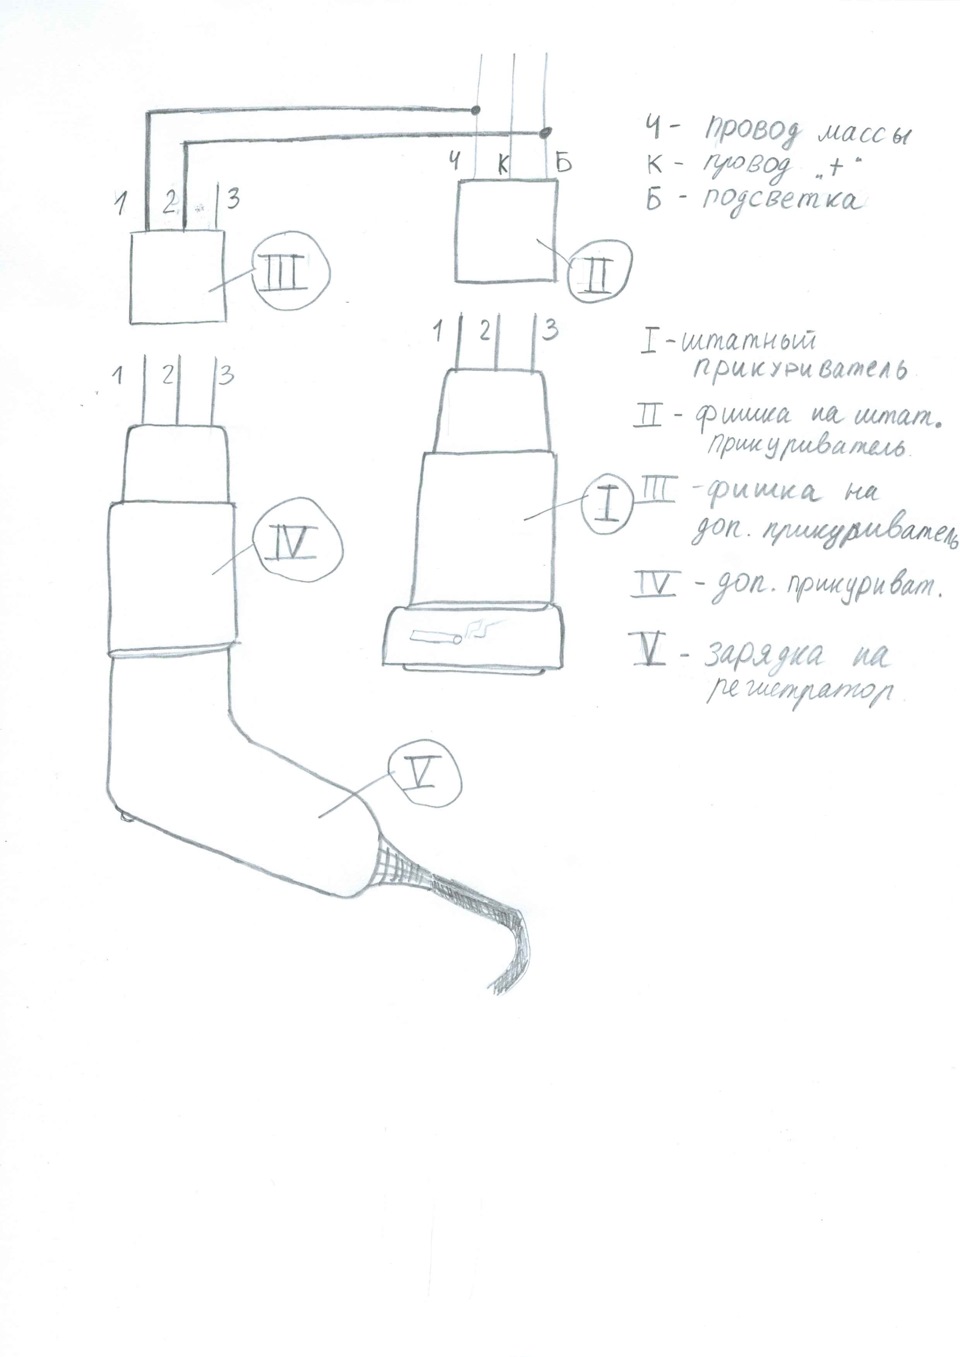 Ч К Б
1 2 3
III
II
1 2 3
1 2 3
IV
I
V
Ч - провод массы
К - провод „+“
Б - подсветка
I - штатный
прикуриватель
II - фишка на штат.
прикуриватель
III - фишка на
доп. прикуриватель
IV - доп. прикуриват.
V - зарядка на
регистратор